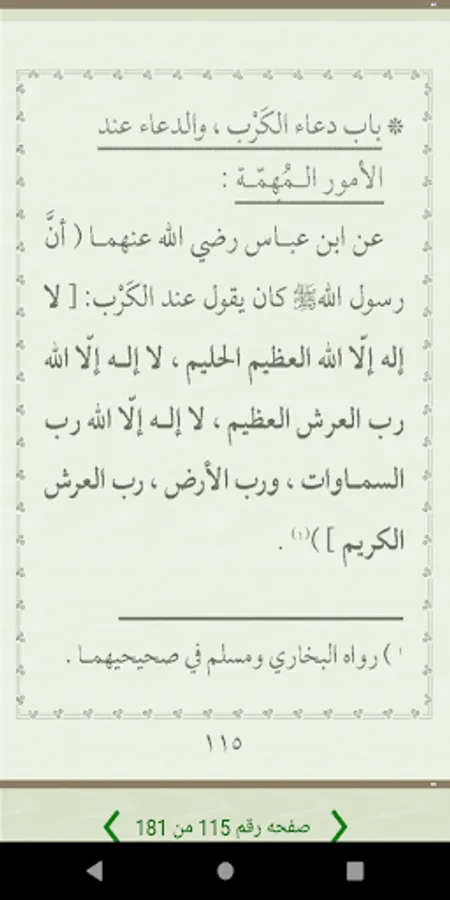 * باب دعاء الكَرْب ، والدعاء عند
الأمور الـمُهِمّـة :
عن ابن عبـاس رضي الله عنهمـا ( أنَّ
رسول اللهﷺ كان يقول عند الكَرْب: [ لا
إله إلّا الله العظيم الحليم ، لا إلـه إلّا الله
رب العرش العظيم ، لا إلـه إلّا الله رب
السمـاوات ، ورب الأرض ، رب العرش
الكريم ] )(١) .
١ ) رواه البخاري ومسلم في صحيحيهمـا .
١١٥
صفحه رقم 115 من 181